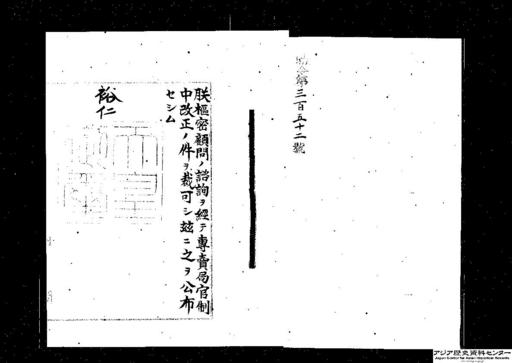 勅令第三百五十二號
朕樞密顧問ノ諮詢ヲ經テ專賣局官制
中改正ノ件ヲ裁可シ玆ニ之ヲ公布
セシム
裕仁
アジア歴史資料センター
Japan Center for Asian Historical Records